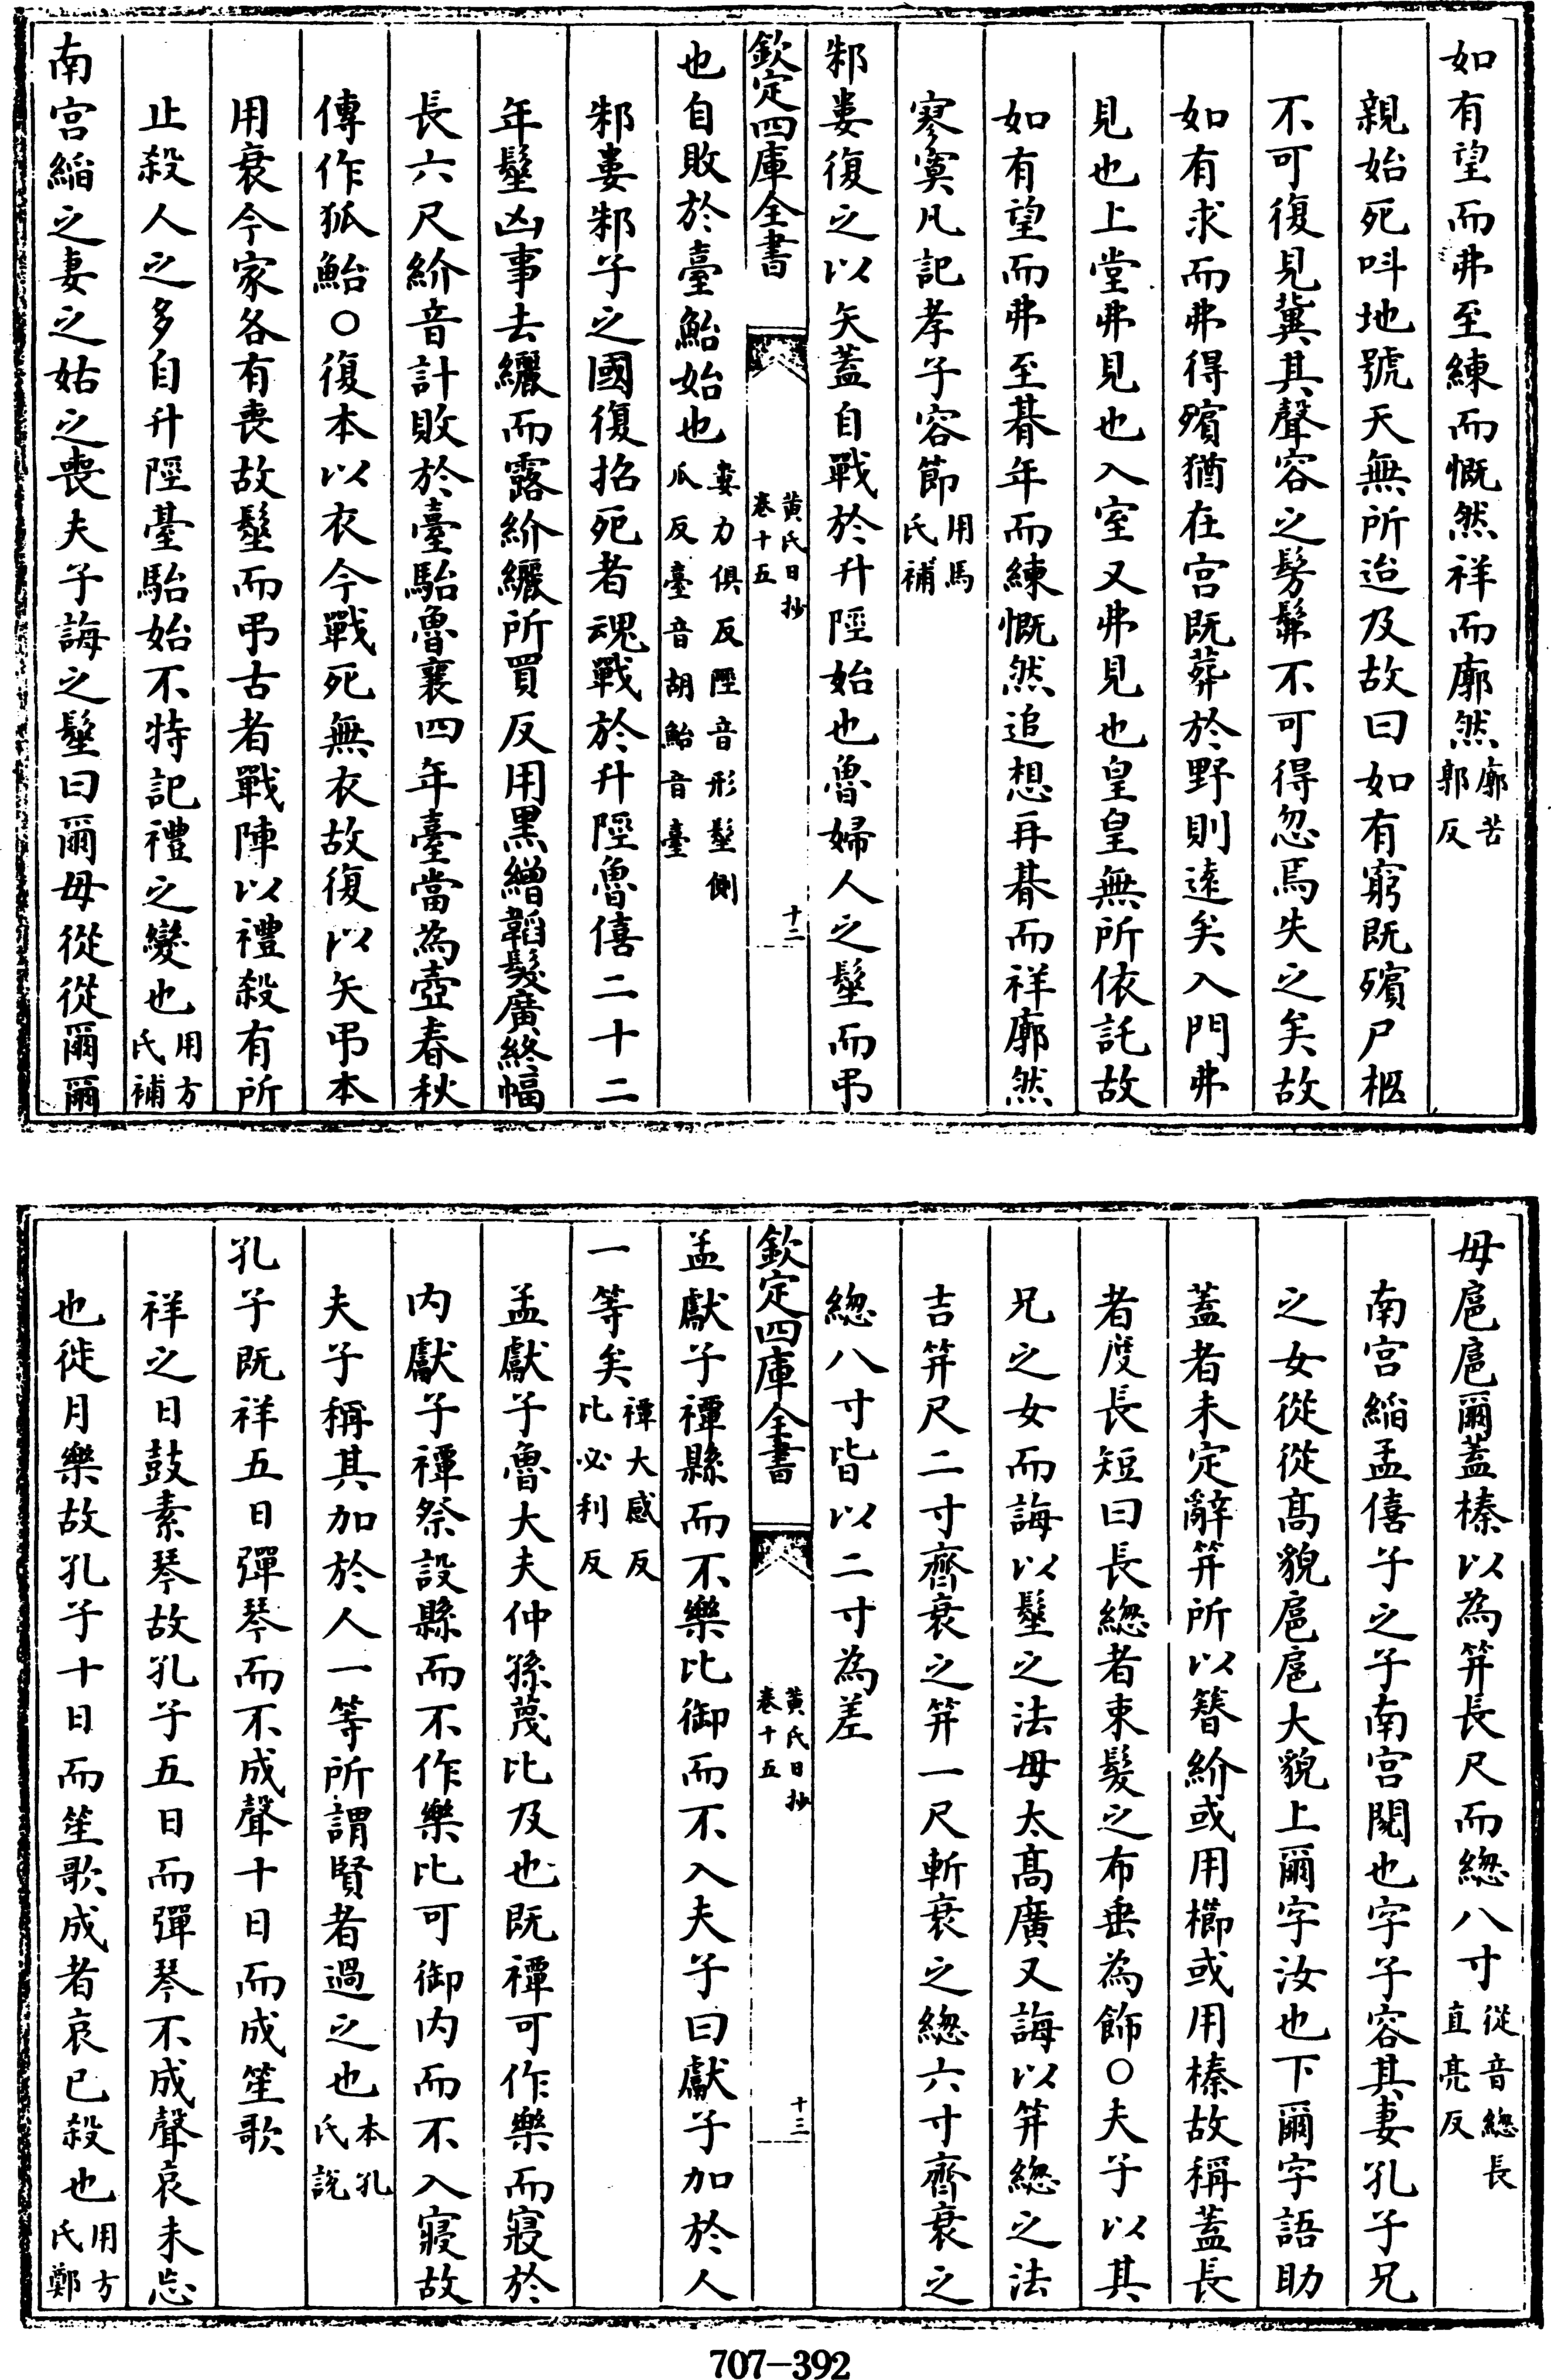 如有望而弗至練而慨然祥而廓然廓苦郭反
親始死呌地號天無所迨及故曰如有窮既殯尸柩
不可復見冀其聲容之髣髴不可得忽焉失之矣故
如有求而弗得殯猶在宫既葬於野則逺矣入門弗
見也上堂弗見也入室又弗見也皇皇無所依託故
如有望而弗至朞年而練慨然追想再朞而祥廓然
寥寞凡記孝子容節用馬氏補
邾婁復之以矢蓋自戰於升陘始也魯婦人之髽而弔
欽定四庫全書
黄氏日抄
卷十五
十二
也自敗於臺鮐始也婁力俱反陘音形髽側瓜反臺音胡鮐音臺
邾婁邾子之國復招死者魂戰於升陘魯僖二十二
年髽凶事去纚而露紒纚所買反用黒繒韜髮廣終幅
長六尺紒音計敗於臺駘魯襄四年臺當為壺春秋
傳作狐鮐○復本以衣今戰死無衣故復以矢弔本
用衰今家各有喪故髽而弔古者戰陣以禮殺有所
止殺人之多自升陘臺駘始不特記禮之變也用方氏補
南宫縚之妻之姑之喪夫子誨之髽曰爾毋從從爾爾
毋扈扈爾蓋榛以為笄長尺而緫八寸從音緫長直亮反
南宫縚孟僖子之子南宫閲也字子容其妻孔子兄
之女從從髙貌扈扈大貌上爾字汝也下爾字語助
蓋者未定辭笄所以簪紒或用櫛或用榛故稱蓋長
者度長短曰長緫者束髮之布垂為飾○夫子以其
兄之女而誨以髽之法毋太髙廣又誨以笄緫之法
吉笄尺二寸齊衰之笄一尺斬衰之緫六寸齊衰之
緫八寸皆以二寸為差
欽定四庫全書
黄氏日抄
卷十五
十三
孟獻子禫縣而不樂比御而不入夫子曰獻子加於人
一等矣禫大感反比必利反
孟獻子魯大夫仲孫蔑比及也既禫可作樂而寢於
内獻子禫祭設縣而不作樂比可御内而不入寢故
夫子稱其加於人一等所謂賢者過之也本孔氏說
孔子既祥五日彈琴而不成聲十日而成笙歌
祥之日鼓素琴故孔子五日而彈琴不成聲哀未忘
也徙月樂故孔子十日而笙歌成者哀已殺也用方氏鄭
707-392